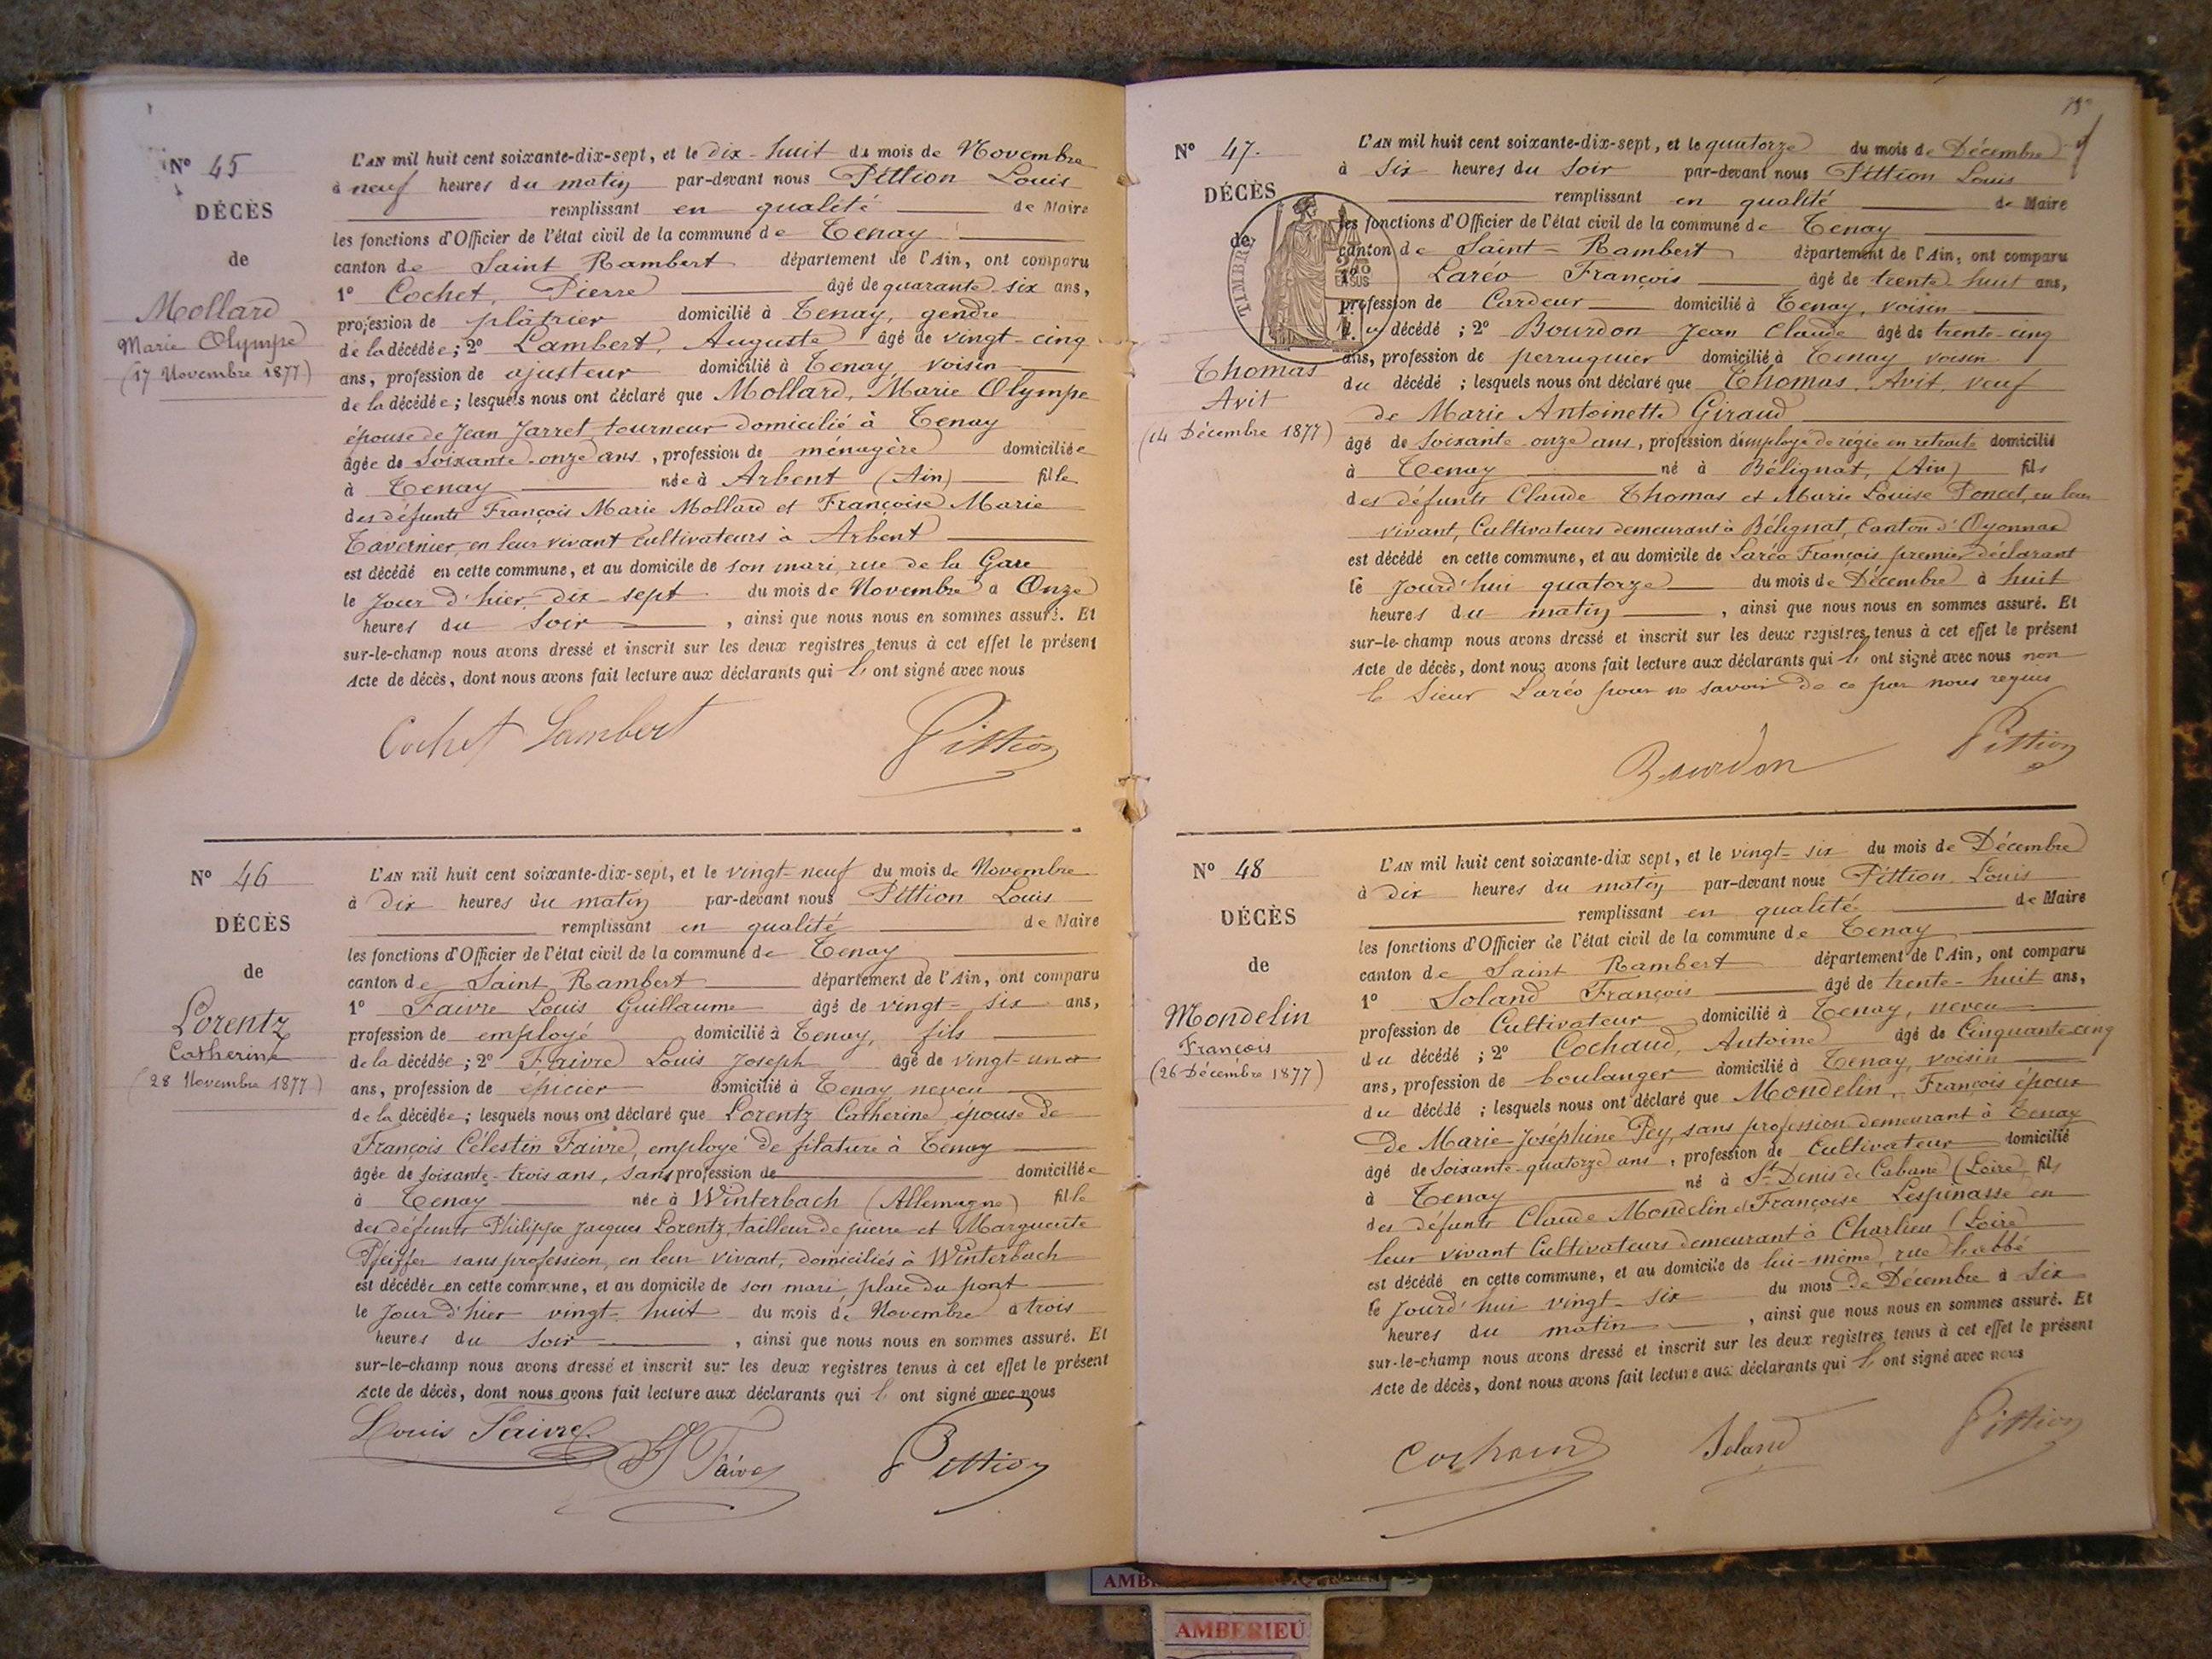 Nº 45
DÉCÈS
de
Mollard
Marie Olympe
(17 Novembre 1877)
L'AN mil huit cent soixante-dix-sept, et le dix-huit du mois de Novembre
à neuf heures du matin par-devant nous Pittion Louis
remplissant en qualité de Maire
les fonctions d'Officier de l'état civil de la commune de Tenay
canton de Saint Rambert département de l'Ain, ont comparu
1º Cochet, Pierre âgé de quarante-six ans,
profession de plâtrier domicilié à Tenay, gendre
de la décédée; 2º Lambert, Auguste âgé de vingt-cinq
ans, profession de ajusteur domicilié à Tenay, voisin
de la décédée; lesquels nous ont déclaré que Mollard, Marie Olympe
épouse de Jean Jarret tourneur domicilié à Tenay
âgée de Soixante-onze ans, profession de ménagère domiciliée
à Tenay née à Arbent (Ain) fille
des défunts François Marie Mollard et Françoise Marie
Tavernier, en leur vivant cultivateurs à Arbent
est décédé en cette commune, et au domicile de son mari, rue de la Gare
le Jour d'hier, dix-sept du mois de Novembre à Onze
heures du Soir, ainsi que nous nous en sommes assuré. Et
sur-le-champ nous avons dressé et inscrit sur les deux registres tenus à cet effet le présent
Acte de décès, dont nous avons fait lecture aux déclarants qui l' ont signé avec nous
Cochet Lambert Pittion
Nº 46
DÉCÈS
de
Lorentz
Catherine
(28 Novembre 1877)
L'AN mil huit cent soixante-dix-sept, et le vingt-neuf du mois de Novembre
à dix heures du matin par-devant nous Pittion Louis
remplissant en qualité de Maire
les fonctions d'Officier de l'état civil de la commune de Tenay
canton de Saint Rambert département de l'Ain, ont comparu
1º Faivre Louis Guillaume âgé de vingt-six ans,
profession de employé domicilié à Tenay, fils
de la décédée; 2º Faivre Louis Joseph âgé de vingt-un
ans, profession de épicier domicilié à Tenay neveu
de la décédée; lesquels nous ont déclaré que Lorentz Catherine, épouse de
François Célestin Faivre, employé de filature à Tenay
âgée de soixante-trois ans, sans profession de domiciliée
à Tenay née à Winterbach (Allemagne) fille
des défunts Philippe Jacques Lorentz, tailleur de pierre et Marguerite
Pfeiffer sans profession, en leur vivant, domiciliés à Winterbach
est décédée en cette commune, et au domicile de son mari, place du pont
le Jour d'hier vingt-huit du mois de Novembre à trois
heures du soir, ainsi que nous nous en sommes assuré. Et
sur-le-champ nous avons dressé et inscrit sur les deux registres tenus à cet effet le présent
Acte de décès, dont nous avons fait lecture aux déclarants qui l' ont signé avec nous
Louis Faivre Faivre Pittion
Nº 47.
DÉCÈS
de
TIMBRE
Thomas
Avit
(14 Décembre 1877)
L'AN mil huit cent soixante-dix-sept, et le quatorze du mois de Décembre
à six heures du soir par-devant nous Pittion Louis
remplissant en qualité de Maire
les fonctions d'Officier de l'état civil de la commune de Tenay
canton de Saint-Rambert département de l'Ain, ont comparu
1º Laréo François âgé de trente-huit ans,
profession de Cardeur domicilié à Tenay, voisin
du décédé; 2º Bourdon Jean Claude âgé de trente-cinq
ans, profession de perruquier domicilié à Tenay voisin
du décédé; lesquels nous ont déclaré que Thomas, Avit, veuf
de Marie Antoinette Giraud
âgé de soixante-onze ans, profession d'employé de régie en retraite domicilié
à Tenay né à Bélignat, (Ain) fils
des défunts Claude Thomas et Marie Louise Poncet, en leur
vivant, Cultivateurs demeurant à Bélignat, Canton d'Oyonnax
est décédé en cette commune, et au domicile de Laréo François, premier déclarant
le jourd'hui quatorze du mois de Décembre à huit
heures du matin, ainsi que nous nous en sommes assuré. Et
sur-le-champ nous avons dressé et inscrit sur les deux registres tenus à cet effet le présent
Acte de décès, dont nous avons fait lecture aux déclarants qui l' ont signé avec nous non
le Sieur Laréo pour ne savoir de ce par nous requis
Bourdon Pittion
Nº 48
DÉCÈS
de
Mondelin
François
(26 Décembre 1877)
L'AN mil huit cent soixante-dix sept, et le vingt-six du mois de Décembre
à dix heures du matin par-devant nous Pittion Louis
remplissant en qualité de Maire
les fonctions d'Officier de l'état civil de la commune de Tenay
canton de Saint Rambert département de l'Ain, ont comparu
1º Soland François âgé de trente-huit ans,
profession de Cultivateur domicilié à Tenay, neveu
du décédé; 2º Cochaud, Antoine âgé de Cinquante-cinq
ans, profession de boulanger domicilié à Tenay, voisin
du décédé; lesquels nous ont déclaré que Mondelin, François époux
de Marie-Joséphine Pey, sans profession demeurant à Tenay
âgé de Soixante-quatorze ans, profession de Cultivateur domicilié
à Tenay né à St Denis de Cabane (Loire) fils
des défunts Claude Mondelin et Françoise Lespinasse en
leur vivant Cultivateurs demeurant à Charlieu (Loire)
est décédé en cette commune, et au domicile de lui-même, rue
le jourd'hui vingt-six du mois de Décembre à Six
heures du matin, ainsi que nous nous en sommes assuré. Et
sur-le-champ nous avons dressé et inscrit sur les deux registres tenus à cet effet le présent
Acte de décès, dont nous avons fait lecture aux déclarants qui l' ont signé avec nous
Cochaud Soland Pittion
AMBERIEU